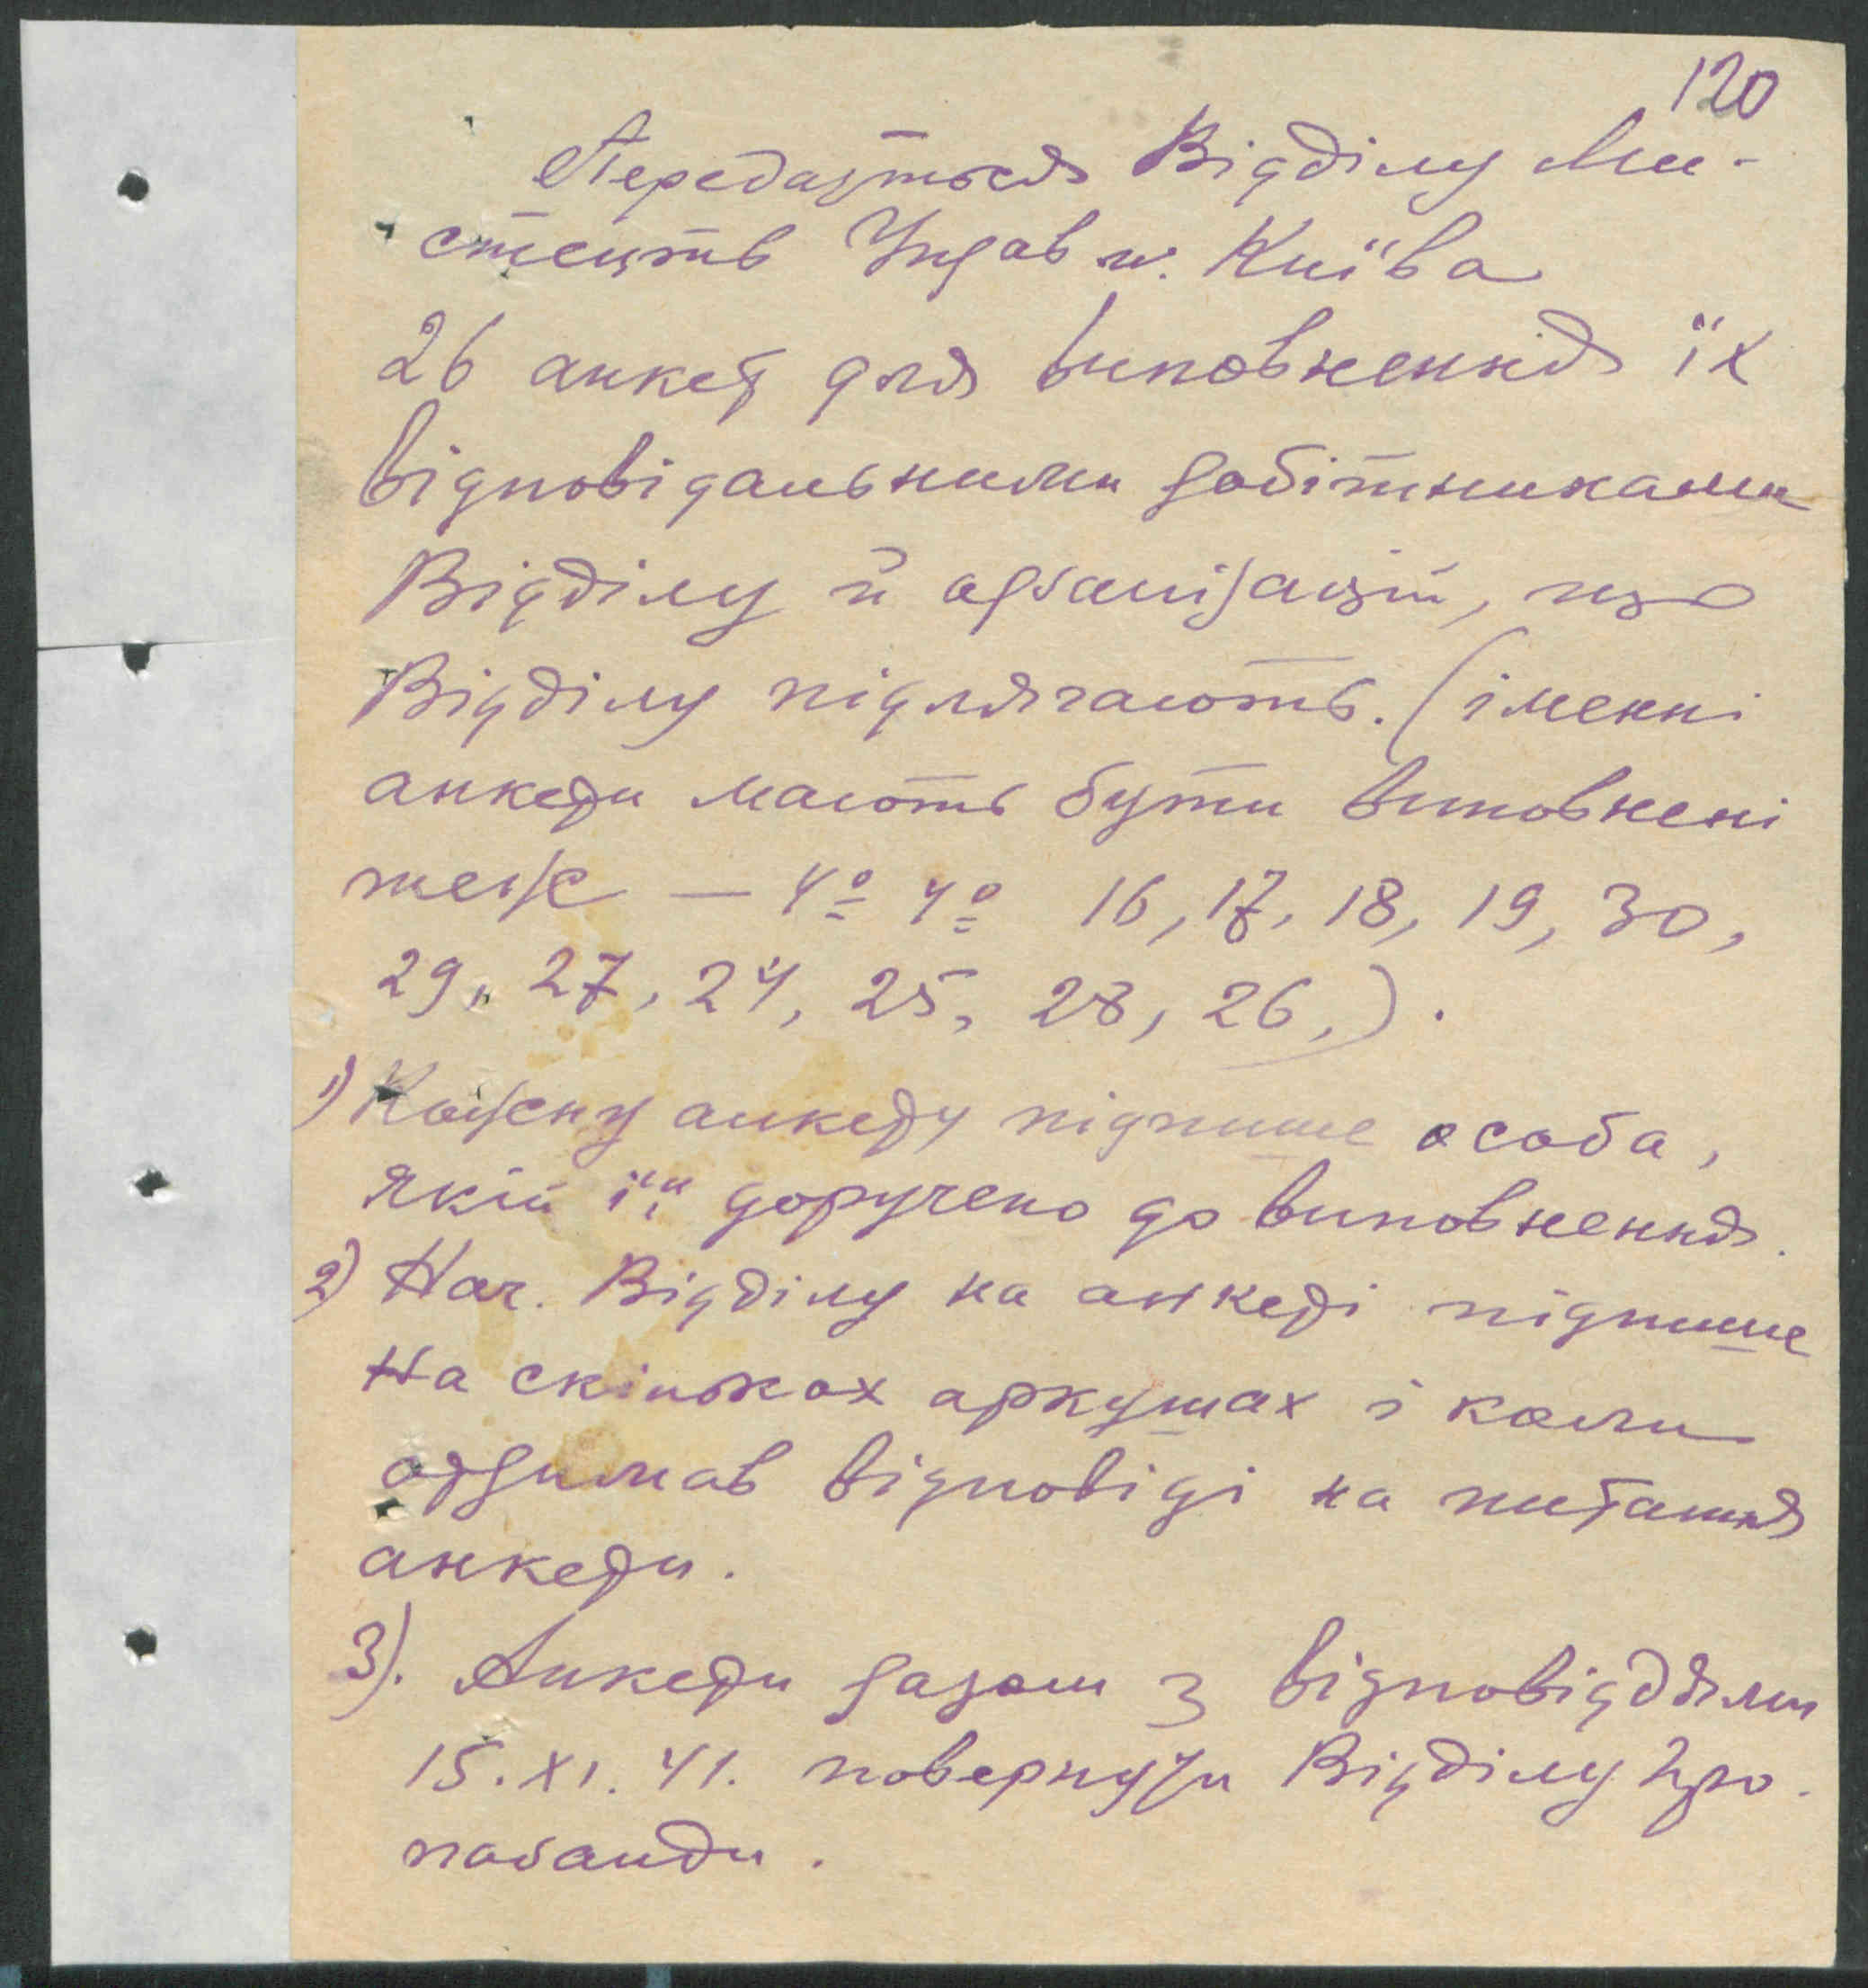 120
Передаються Відділу Ми-
стецтв Управ м. Київа
26 анкет для виповнення їх
відповідальними робітниками
Відділу й організацій, що
Відділу підлягають. (іменні
анкети мають бути виповнені
теж — №№ 16, 17, 18, 19, 30,
29, 27, 24, 25, 28, 26,).
1) Кожну анкету підпише особа,
якій її доручено до виповнення.
2) Нач. Відділу на анкеті підпише
на скількох аркушах і коли
одримав відповіді на питання
анкети.
3). Анкети разом з відповіддями
15.XI.41. повернути Відділу про-
паганди.